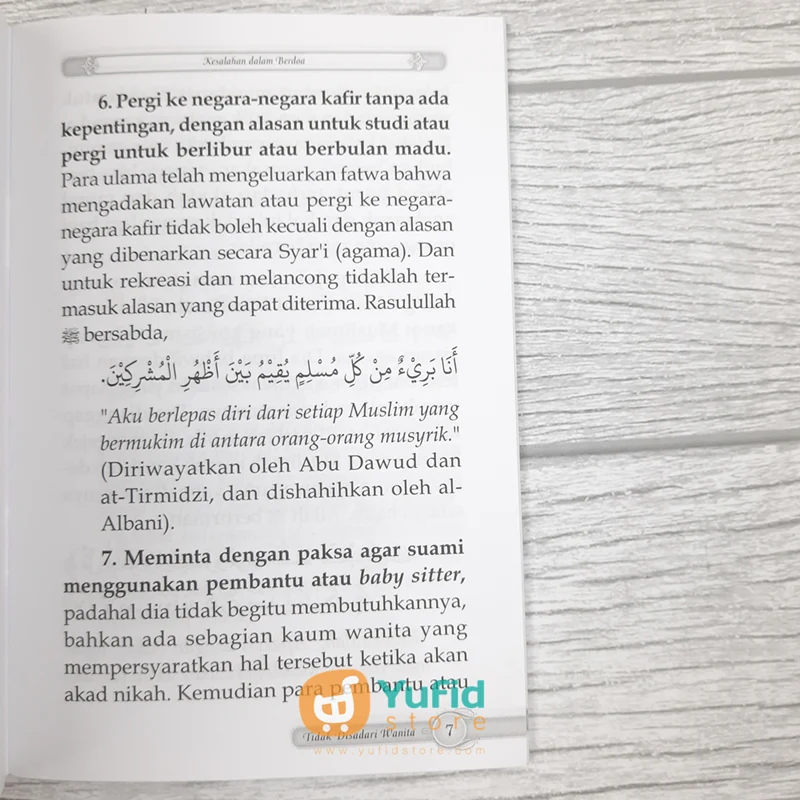 Kesalahan dalam Berdoa
6. Pergi ke negara-negara kafir tanpa ada
kepentingan, dengan alasan untuk studi atau
pergi untuk berlibur atau berbulan madu.
Para ulama telah mengeluarkan fatwa bahwa
mengadakan lawatan atau pergi ke negara-
negara kafir tidak boleh kecuali dengan alasan
yang dibenarkan secara Syar'i (agama). Dan
untuk rekreasi dan melancong tidaklah ter-
masuk alasan yang dapat diterima. Rasulullah
ﷺ bersabda,
أَنَا بَرِيْءٌ مِنْ كُلِّ مُسْلِمٍ يُقِيْمُ بَيْنَ أَظْهُرِ الْمُشْرِكِيْنَ.
"Aku berlepas diri dari setiap Muslim yang
bermukim di antara orang-orang musyrik."
(Diriwayatkan oleh Abu Dawud dan
at-Tirmidzi, dan dishahihkan oleh al-
Albani).
7. Meminta dengan paksa agar suami
menggunakan pembantu atau baby sitter,
padahal dia tidak begitu membutuhkannya,
bahkan ada sebagian kaum wanita yang
mempersyaratkan hal tersebut ketika akan
akad nikah. Kemudian para pembantu atau
Yufid
store
Tidak Disadari Wanita
7
www.yufidstore.com